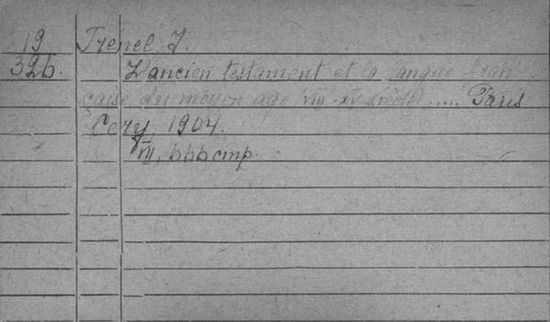 19 Trenel J.
326. L'ancien testament et la langue fran
çaise du moyen age VIII-XV siècle ..... Paris
Cerf, 1904.
VII, 666 стр.